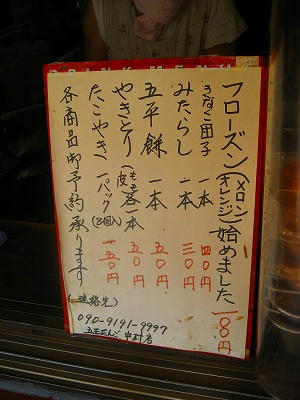 DRINK MENU
フローズン(メロン オレンジ)始めました 一八〇円
きなこ団子 一本 四〇円
みたらし 一本 三〇円
五平餅 一本 五〇円
やきとり(もも 皮)各一本 五〇円
たこやき 一パック(8個入) 一五〇円
各商品御予約承ります
(連絡先)
090-9191-9997
中村店